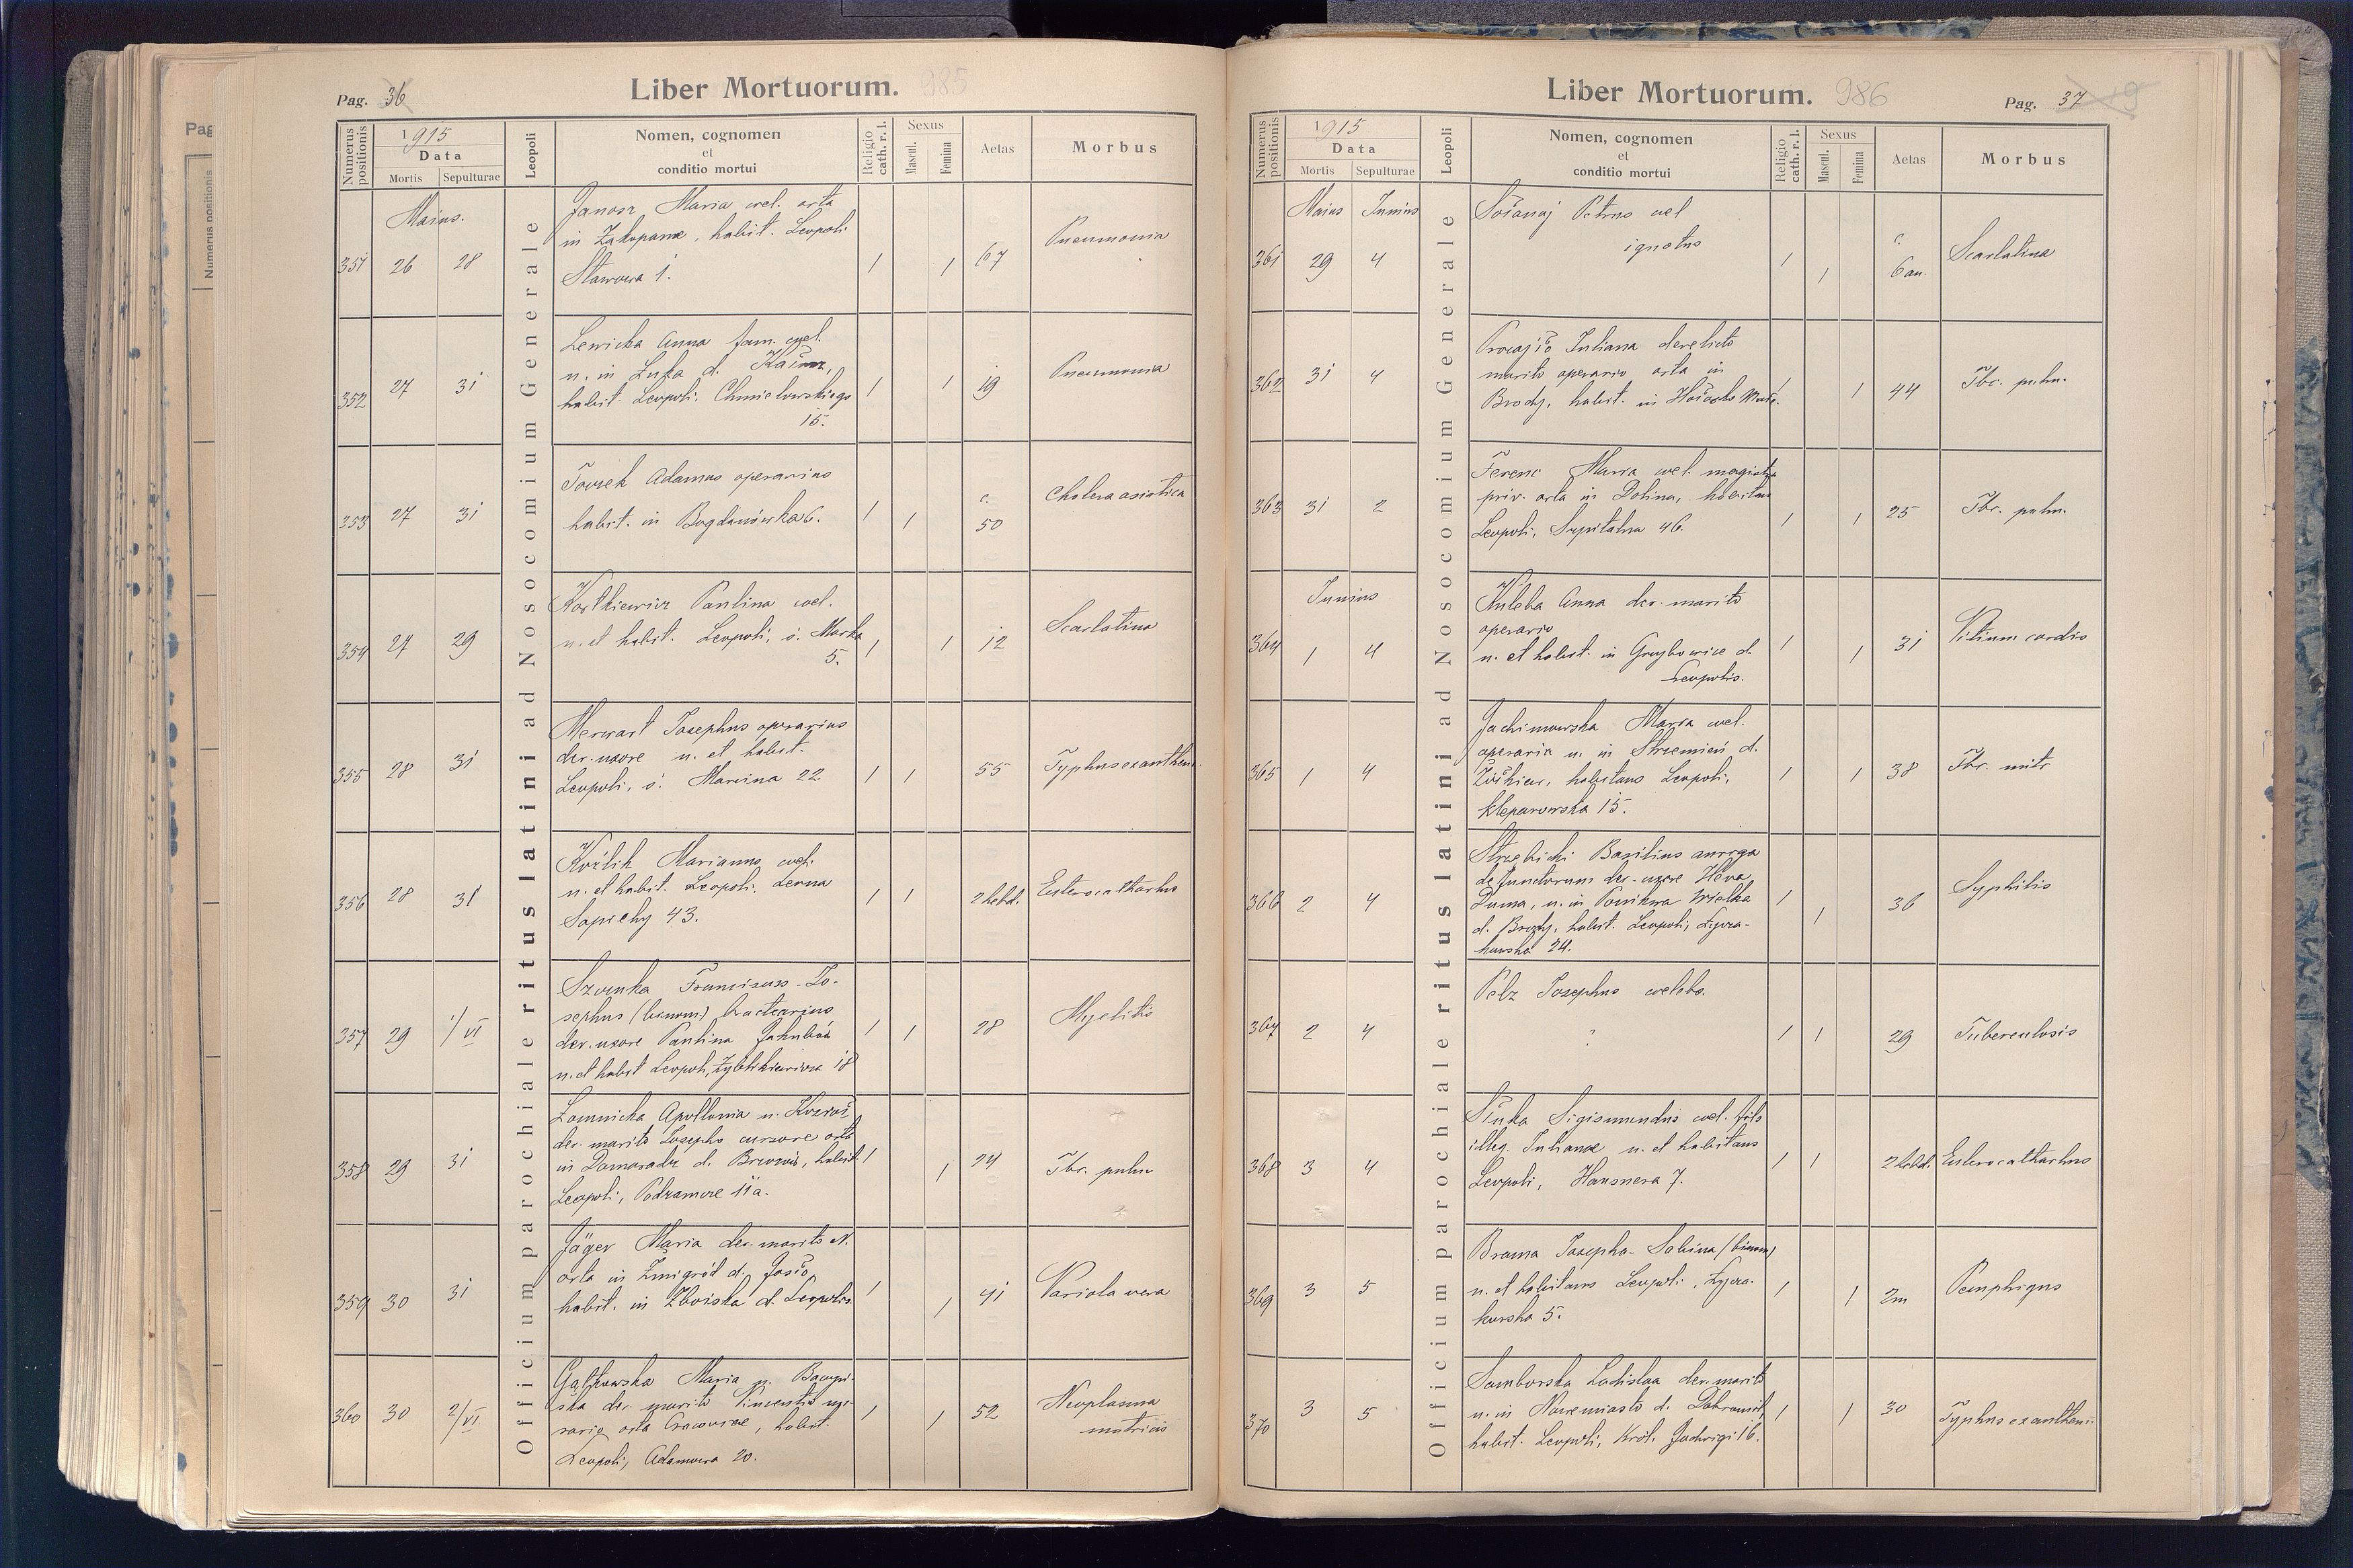 Pag. 36
Liber Mortuorum. 985
Numerus positionis
1915
Data
Mortis
Sepulturae
Leopoli
Nomen, cognomen
et
conditio mortui
Religio
cath. r. l.
Sexus
Mascul.
Femina
Aetas
Morbus
Officium parochiale ritus latini ad Nosocomium Generale
Maius.
351 26 28
Janosz Maria cael. orta
in Zakopane, habit. Leopoli
Stawowa 1.
1 1 67
Pneumonia
352 27 31
Lewicka Anna fam. cael.
n. in d.
habit. Leopoli. Chmielowskiego
15.
1 1 19
Pneumonia
353 27 31
Adamus operarius
habit. in Bogdanówka 6.
1 1 c. 50
Cholera asiatica
354 27 29
Paulina cael.
n. et habit. Leopoli, ś. Marka
5.
1 1 12
Scarlatina
355 28 31
Merwart Josephus operarius
der. uxore n. et habit.
Leopoli, ś. Marcina 22
1 1 55
Typhus exanthem.
356 28 31
Koźlik Marianus cael.
n. et habit. Leopoli. Leona
Sapiehy 43.
1 1 2 hebd.
Enterocatharhus
357 29 1/VI
Franciscus-Jo-
sephus (binom.) bractearius
der. uxore Paulina
n. et habit Leopoli, Zyblikiewicza 18
1 1 28
Myelitis
358 29 31
Łomnicka Apollonia n.
der. marito Josepho cursore orta
in Domaradz d. Brzozów, habit.
Leopoli, Podzamcze 11a.
1 1 24
Tbr. pulm
359 30 31
Jäger Maria der. marito N.
orta in Żmigród d. Jasło,
habit. in Zboiska d. Leopolis.
1 1 41
Variola vera
360 30 2/VI
Maria n.
der. marito Vincentio
orta Cracoviae, habit.
Leopoli, Adamowa 20.
1 1 52
Neoplasma
matricis
Liber Mortuorum. 986
Pag. 37
Numerus positionis
1915
Data
Mortis
Sepulturae
Leopoli
Nomen, cognomen
et
conditio mortui
Religio
cath. r. l.
Sexus
Mascul.
Femina
Aetas
Morbus
Officium parochiale ritus latini ad Nosocomium Generale
Maius Junius
361 29 4
Petrus cael
ignotus
1 1 c. 6 an.
Scarlatina
362 31 4
Juliana derelicto
marito operario orta in
Brody, habit. in
1 44
Tbr. pulm.
363 31 2
Ferenc Maria cael. magistra
priv. orta in Dolina, habitans
Leopoli, Szpitalna 46.
1 1 25
Tbr. pulm.
Junius
364 1 4
Kuleba Anna der. marito
operario
n. et habit. in Grzybowice d.
Leopolis.
1 1 31
Vitium cordis
365 1 4
Jachimowska Maria cael.
operaria n. in Strzemień d.
Żółkiew, habitans Leopoli,
Kleparowska 15.
1 1 38
Tbr.
366 2 4
Basilius auriga
defunctorum der. uxore
Duma, n. in Ponikwa Wielka
d. Brody, habit. Leopoli, Łycza-
kowska 24.
1 1 36
Syphilis
367 2 4
Pelz Josephus caelebs.
?
1 1 29
Tuberculosis
368 3 4
Sigismundus cael. fils
illeg. Julianae n. et habitans
Leopoli, Hausnera 7.
1 1 2 hebd.
Enterocatharhus
369 3 5
Brama Josepha-Sabina (binom)
n. et habitans Leopoli. Łycza-
kowska 5.
1 1 2m
Pemphigus
370 3 5
Samborska Ladislaa der. marito
n. in Nowemiasto d. Dobromil,
habit. Leopoli, Król. Jadwigi 16.
1 1 30
Typhus exanthem.